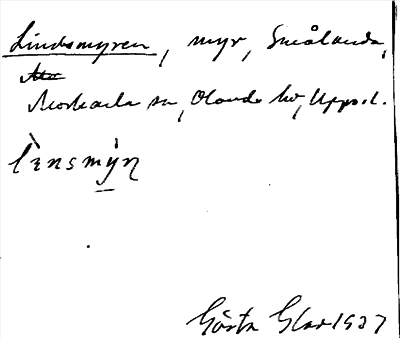 Lindsmyren, myr, Smålanda,
Morkarla sn, Olands hd, Upps. l.
lìnsmýn
Gösta Glas 1937